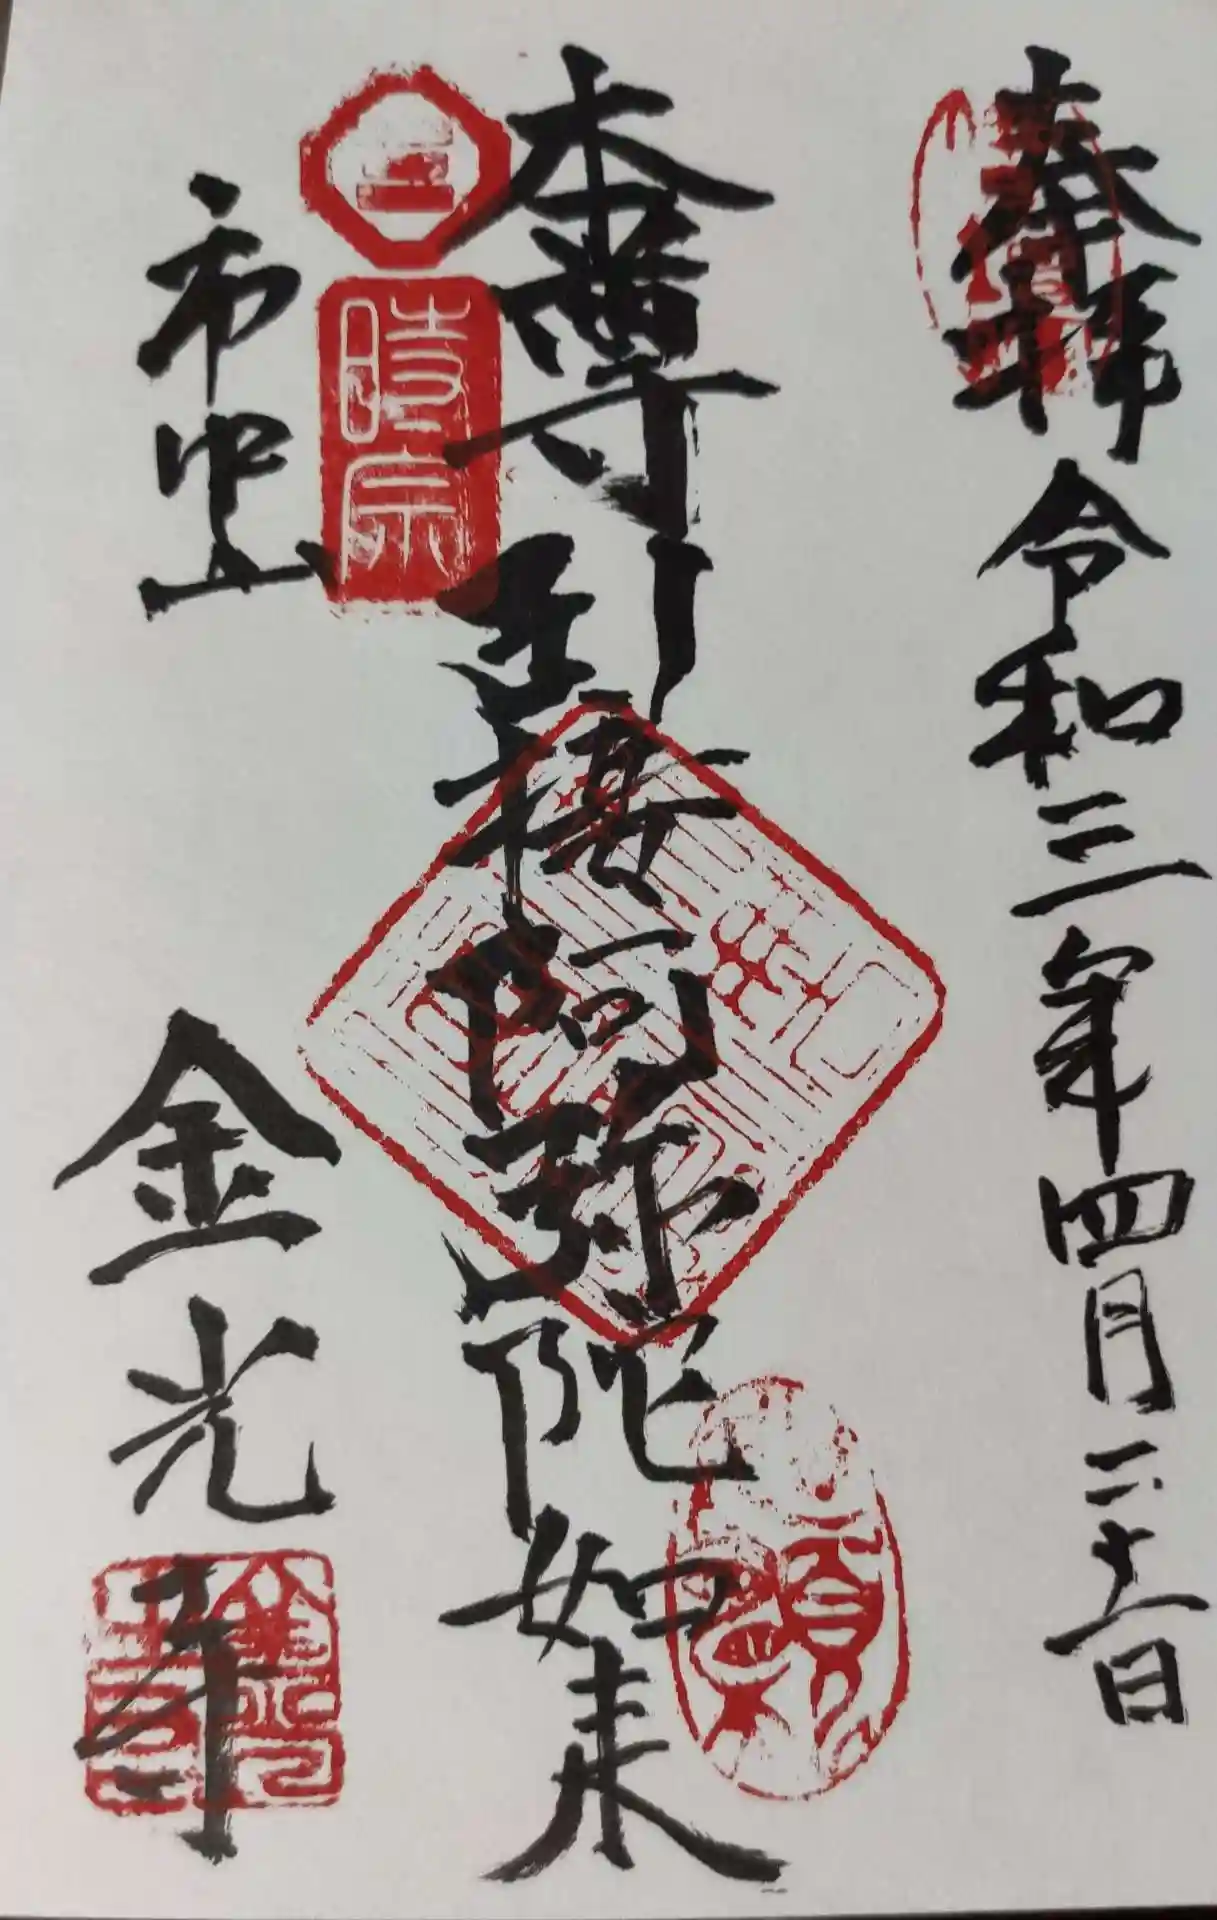 奉拝 令和三年四月二十一日
本尊引接阿弥陀如来
時宗
市中山
金光寺